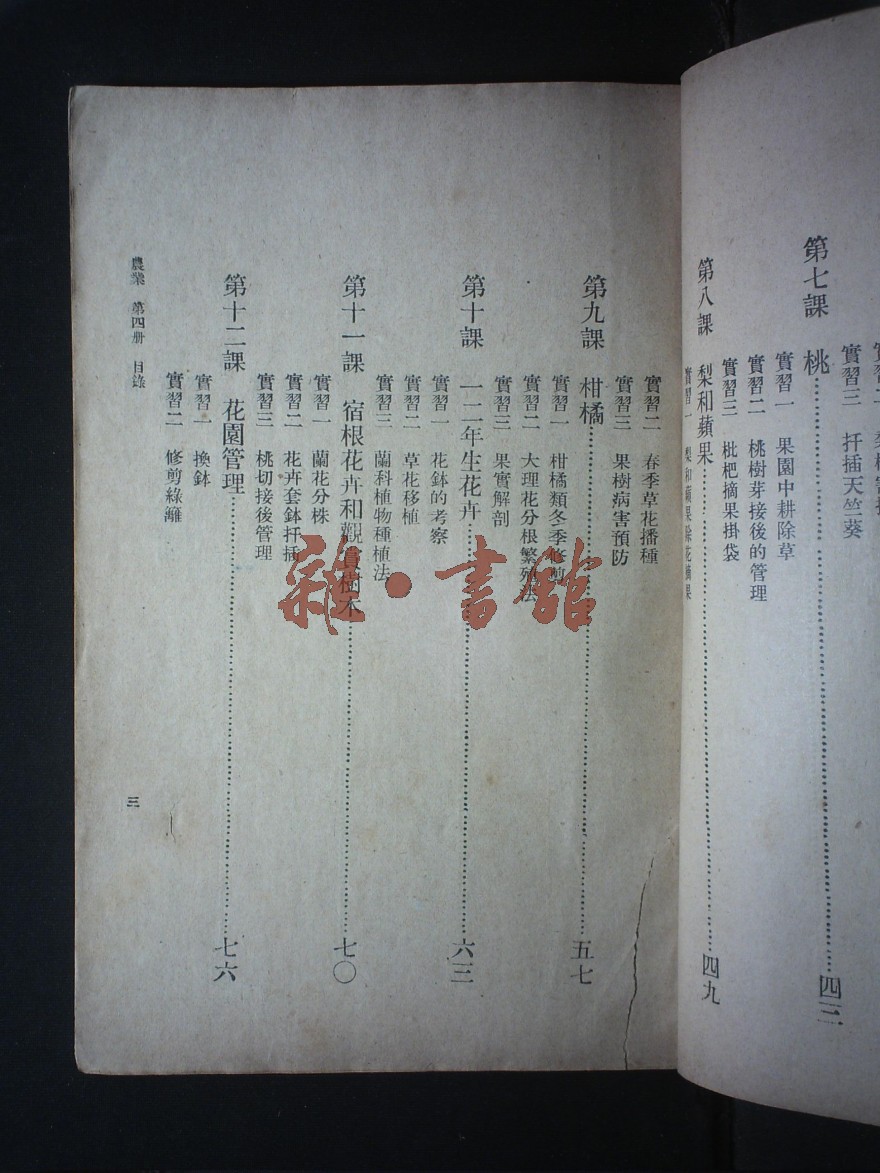 實習三　扦插天竺葵
第七課　桃……四三
實習一　果園中耕除草
實習二　桃樹芽接後的管理
實習三　枇杷摘果掛袋
第八課　梨和蘋果……四九
實習一　梨和蘋果除花摘果
實習二　春季草花播種
實習三　果樹病害預防
第九課　柑橘……五七
實習一　柑橘類冬季修剪
實習二　大理花分根繁殖法
實習三　果實解剖
第十課　一二年生花卉……六三
實習一　花鉢的考察
實習二　草花移植
實習三　蘭科植物種植法
第十一課　宿根花卉和觀賞樹木……七〇
實習一　蘭花分株
實習二　花卉套鉢扦插
實習三　桃切接後管理
第十二課　花園管理……七六
實習一　換鉢
實習二　修剪綠籬
農業　第四册　目錄
三
雜·書館